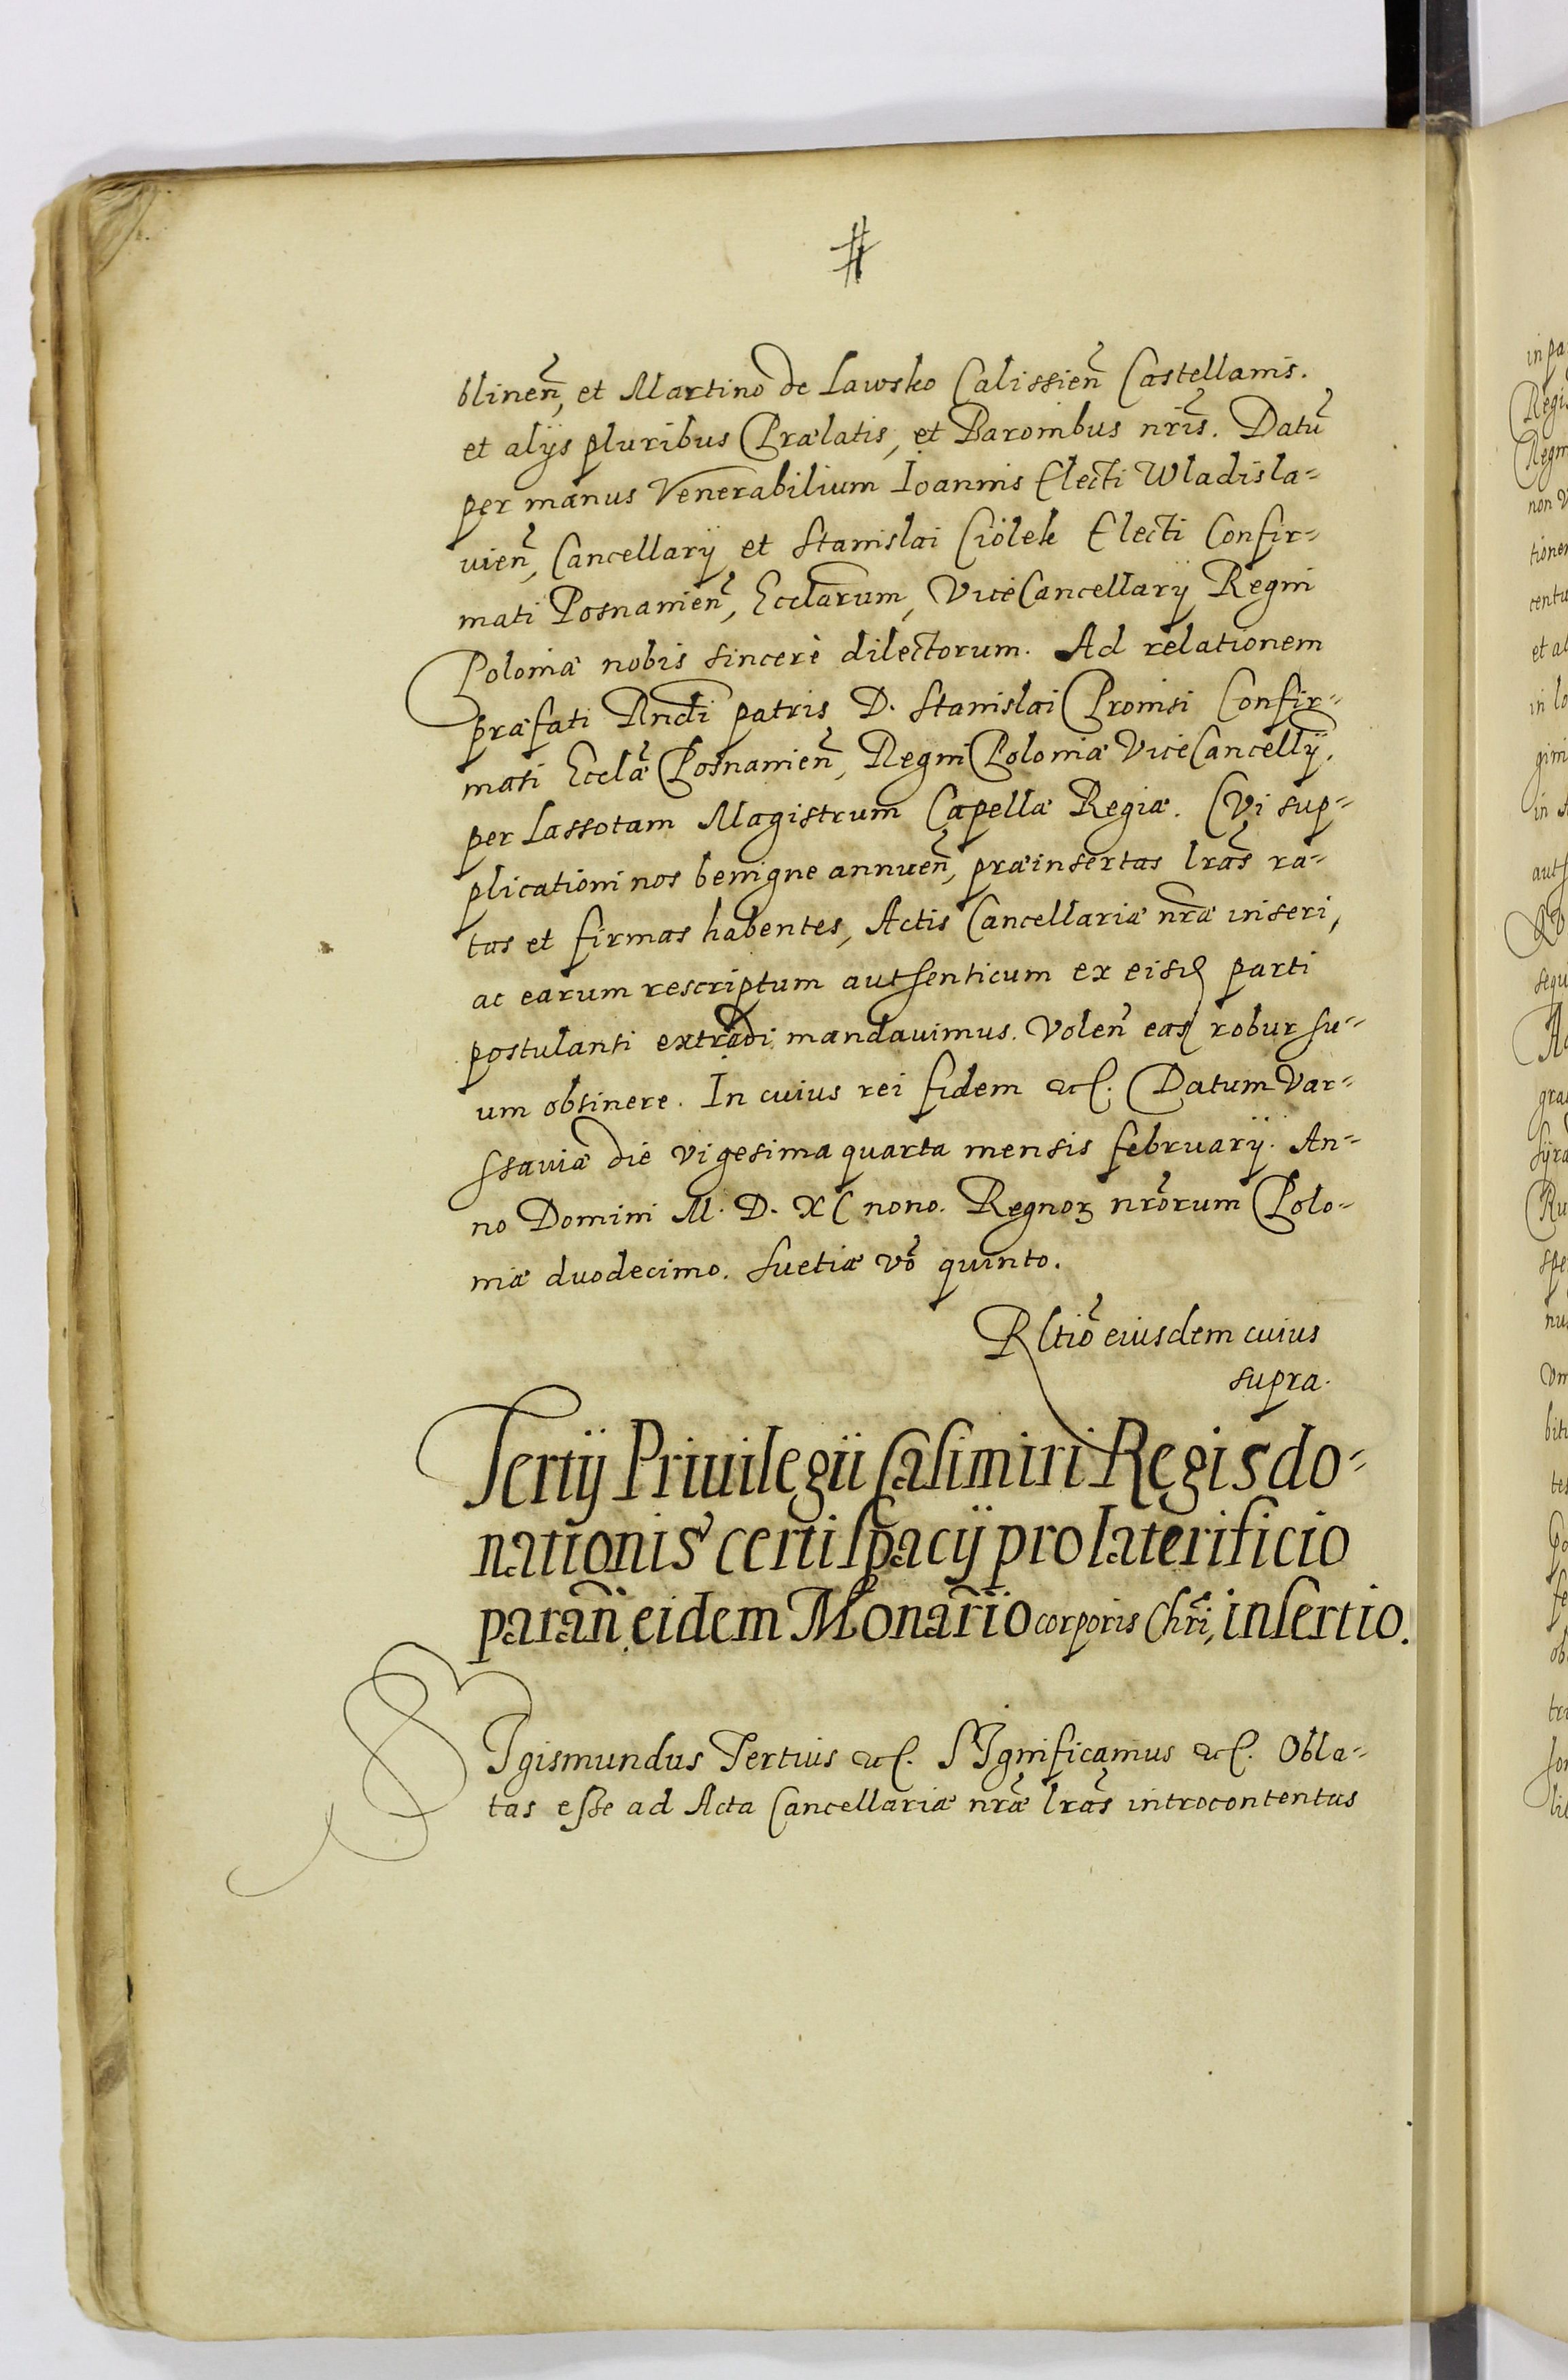 #
blinen̄, et Martino de Lawsko Calissien̄ Castellanis.
et alÿs pluribus Prælatis, et Baronibus nr̄is. Datū
per manus Venerabilium Ioannis Electi Wladisla=
uien̄, Cancellarÿ et Stanislai Ciolek Electi Confir=
mati Posnanien̄, Eccl̄arum, ViceCancellarÿ Regni
Poloniæ nobis sincerè dilectorum. Ad relationem
præfati Rndi patris D. Stanislai Promsi Confir=
mati Eccl̄æ Posnanien̄, Regni Poloniæ ViceCancellÿ.
per Lassotam Magistrum Capellæ Regiæ. CVi sup=
plicationi nos benigne annuen̄, præinsertas lr̄as ra=
tas et firmas habentes, Actis Cancellariæ nr̄æ inseri,
ac earum rescriptum authenticum ex eisd parti
postulanti extradi mandauimus. Volen̄ easd robur su=
um obtinere. In cuius rei fidem etc. Datum Var=
ssauiæ die vigesima quarta mensis februarÿ. An=
no Domini M. D. XC nono. Regnoꝝ nr̄orum Polo=
niæ duodecimo. Suetiæ vō quinto.
Rltiō eiusdem cuius
supra.
Tertÿ Priuilegii Casimiri Regis do=
nationis certi spacÿ pro laterificio
paran̄ eidem Monar̄io corporis Chr̄i, insertio.
SIgismundus Tertius etc. SIgnificamus etc. Obla=
tas esse ad Acta Cancellariæ nr̄æ lr̄as introcontentas